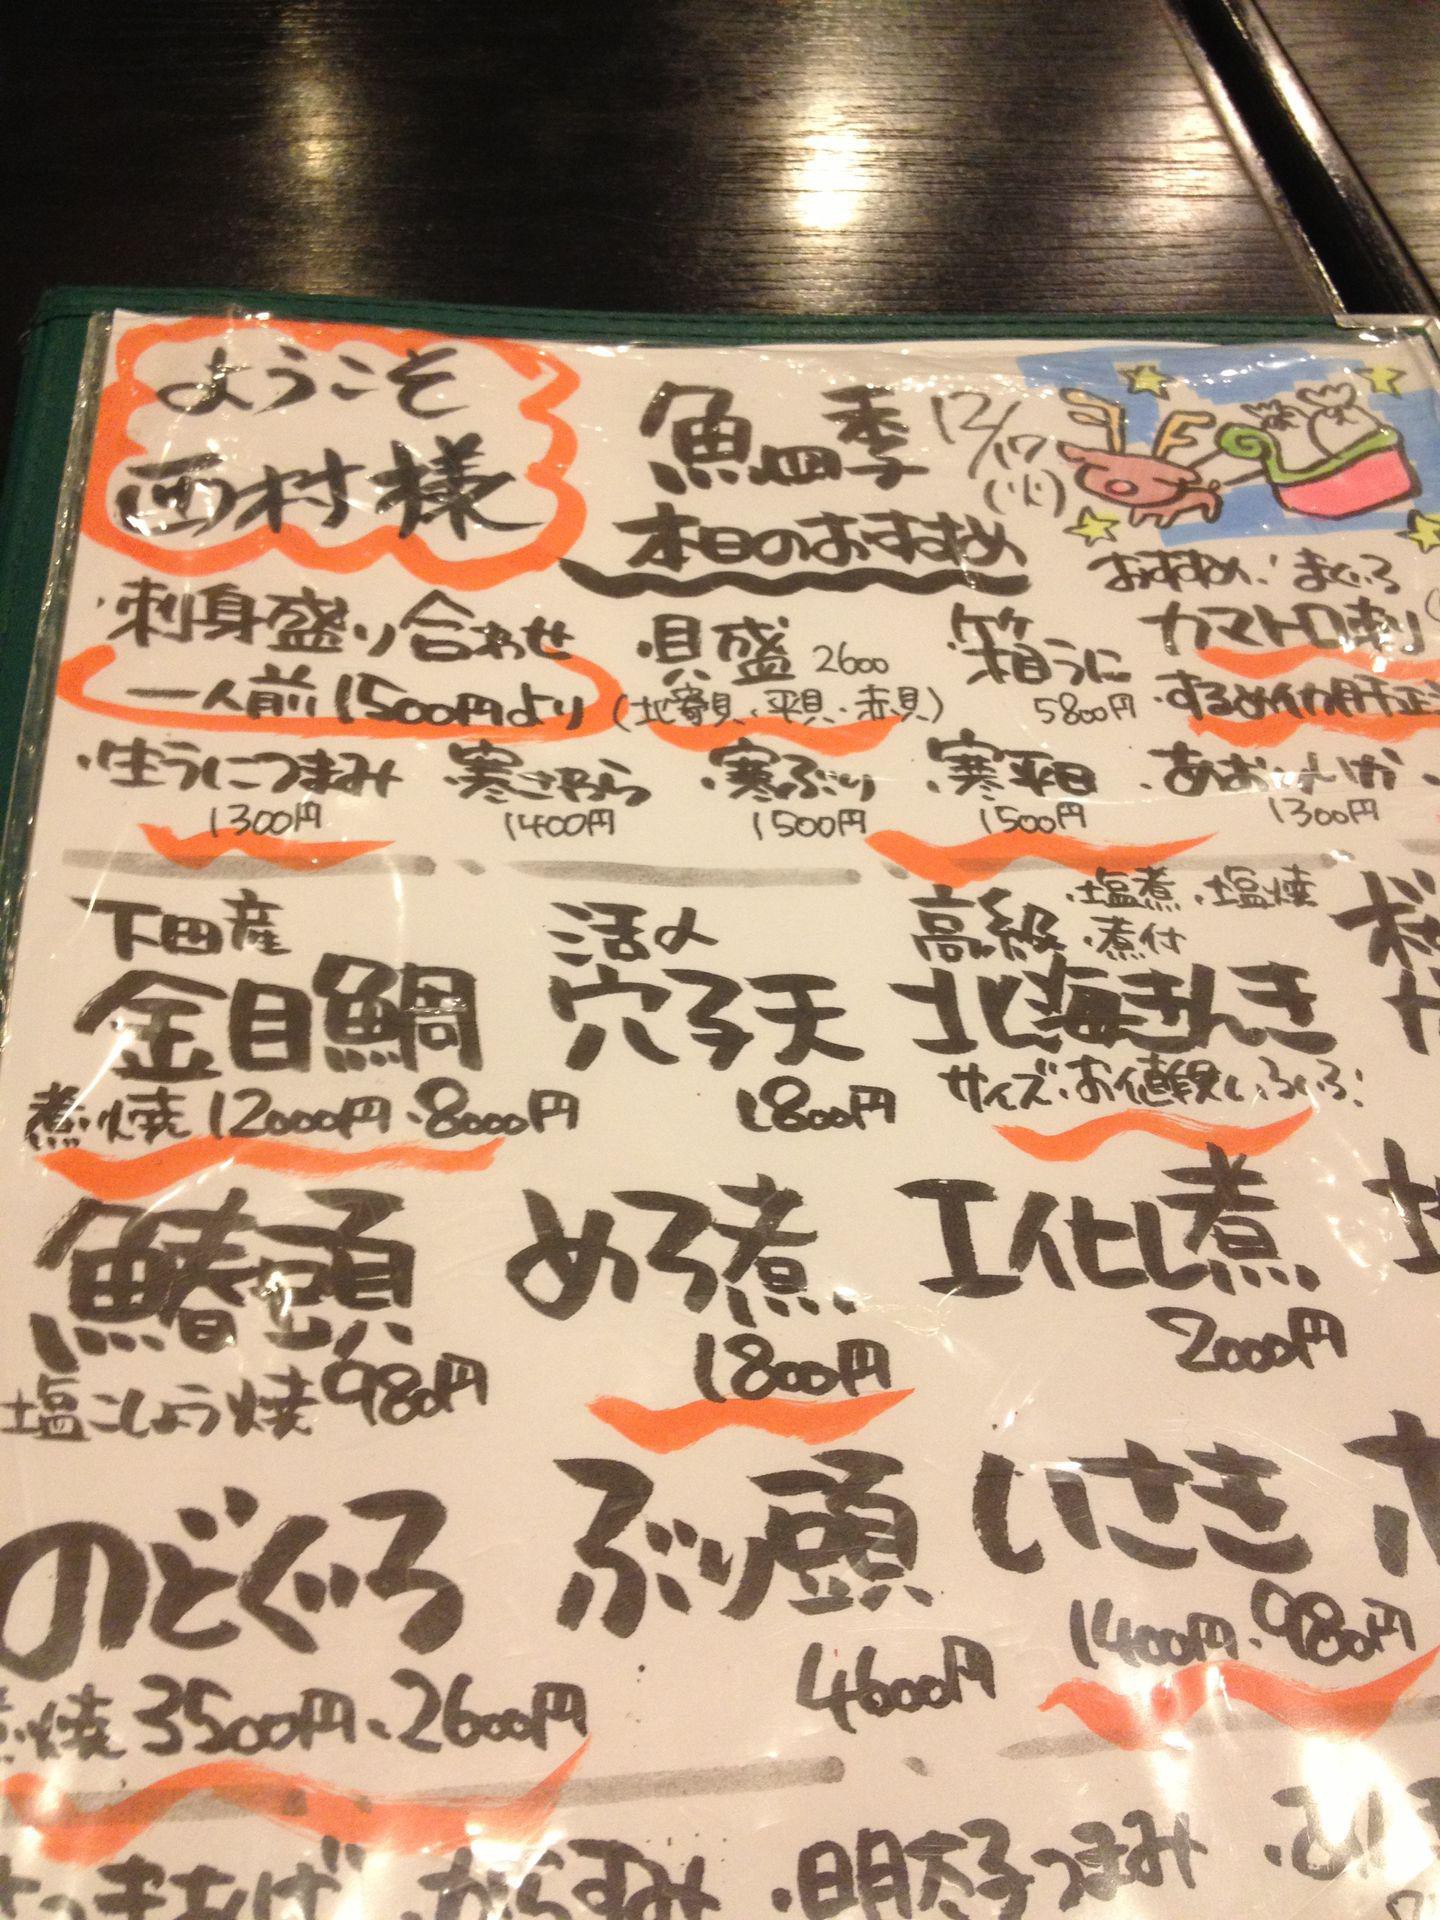 ようこそ
西村様
魚四季
12/17
(火)
本日のおすすめ
おすすめ! まぐろ
カマトロ刺
・するめイカ肝
・刺身盛り合わせ
一人前1500円より
・貝盛 2600
(地寄貝・平貝・赤貝)
箱うに
5800円
・生うにつまみ
1300円
寒さわら
1400円
・寒ぶり
1500円
・寒平目
1500円
・あおりいか
1300円
下田産
金目鯛
煮・焼 12000円・8000円
活〆
穴子天
1800円
高級
・塩煮 ・塩焼
・煮付
北海きんき
サイズ・お値段いろいろ!
鰆頭
塩こしょう焼 980円
めろ煮
1800円
エイヒレ煮
2000円
のどぐろ
煮・焼 3500円・2600円
ぶり頭
4600円
いさき
1400円・980円
さつまあげ
・からすみ
・明太子つまみ